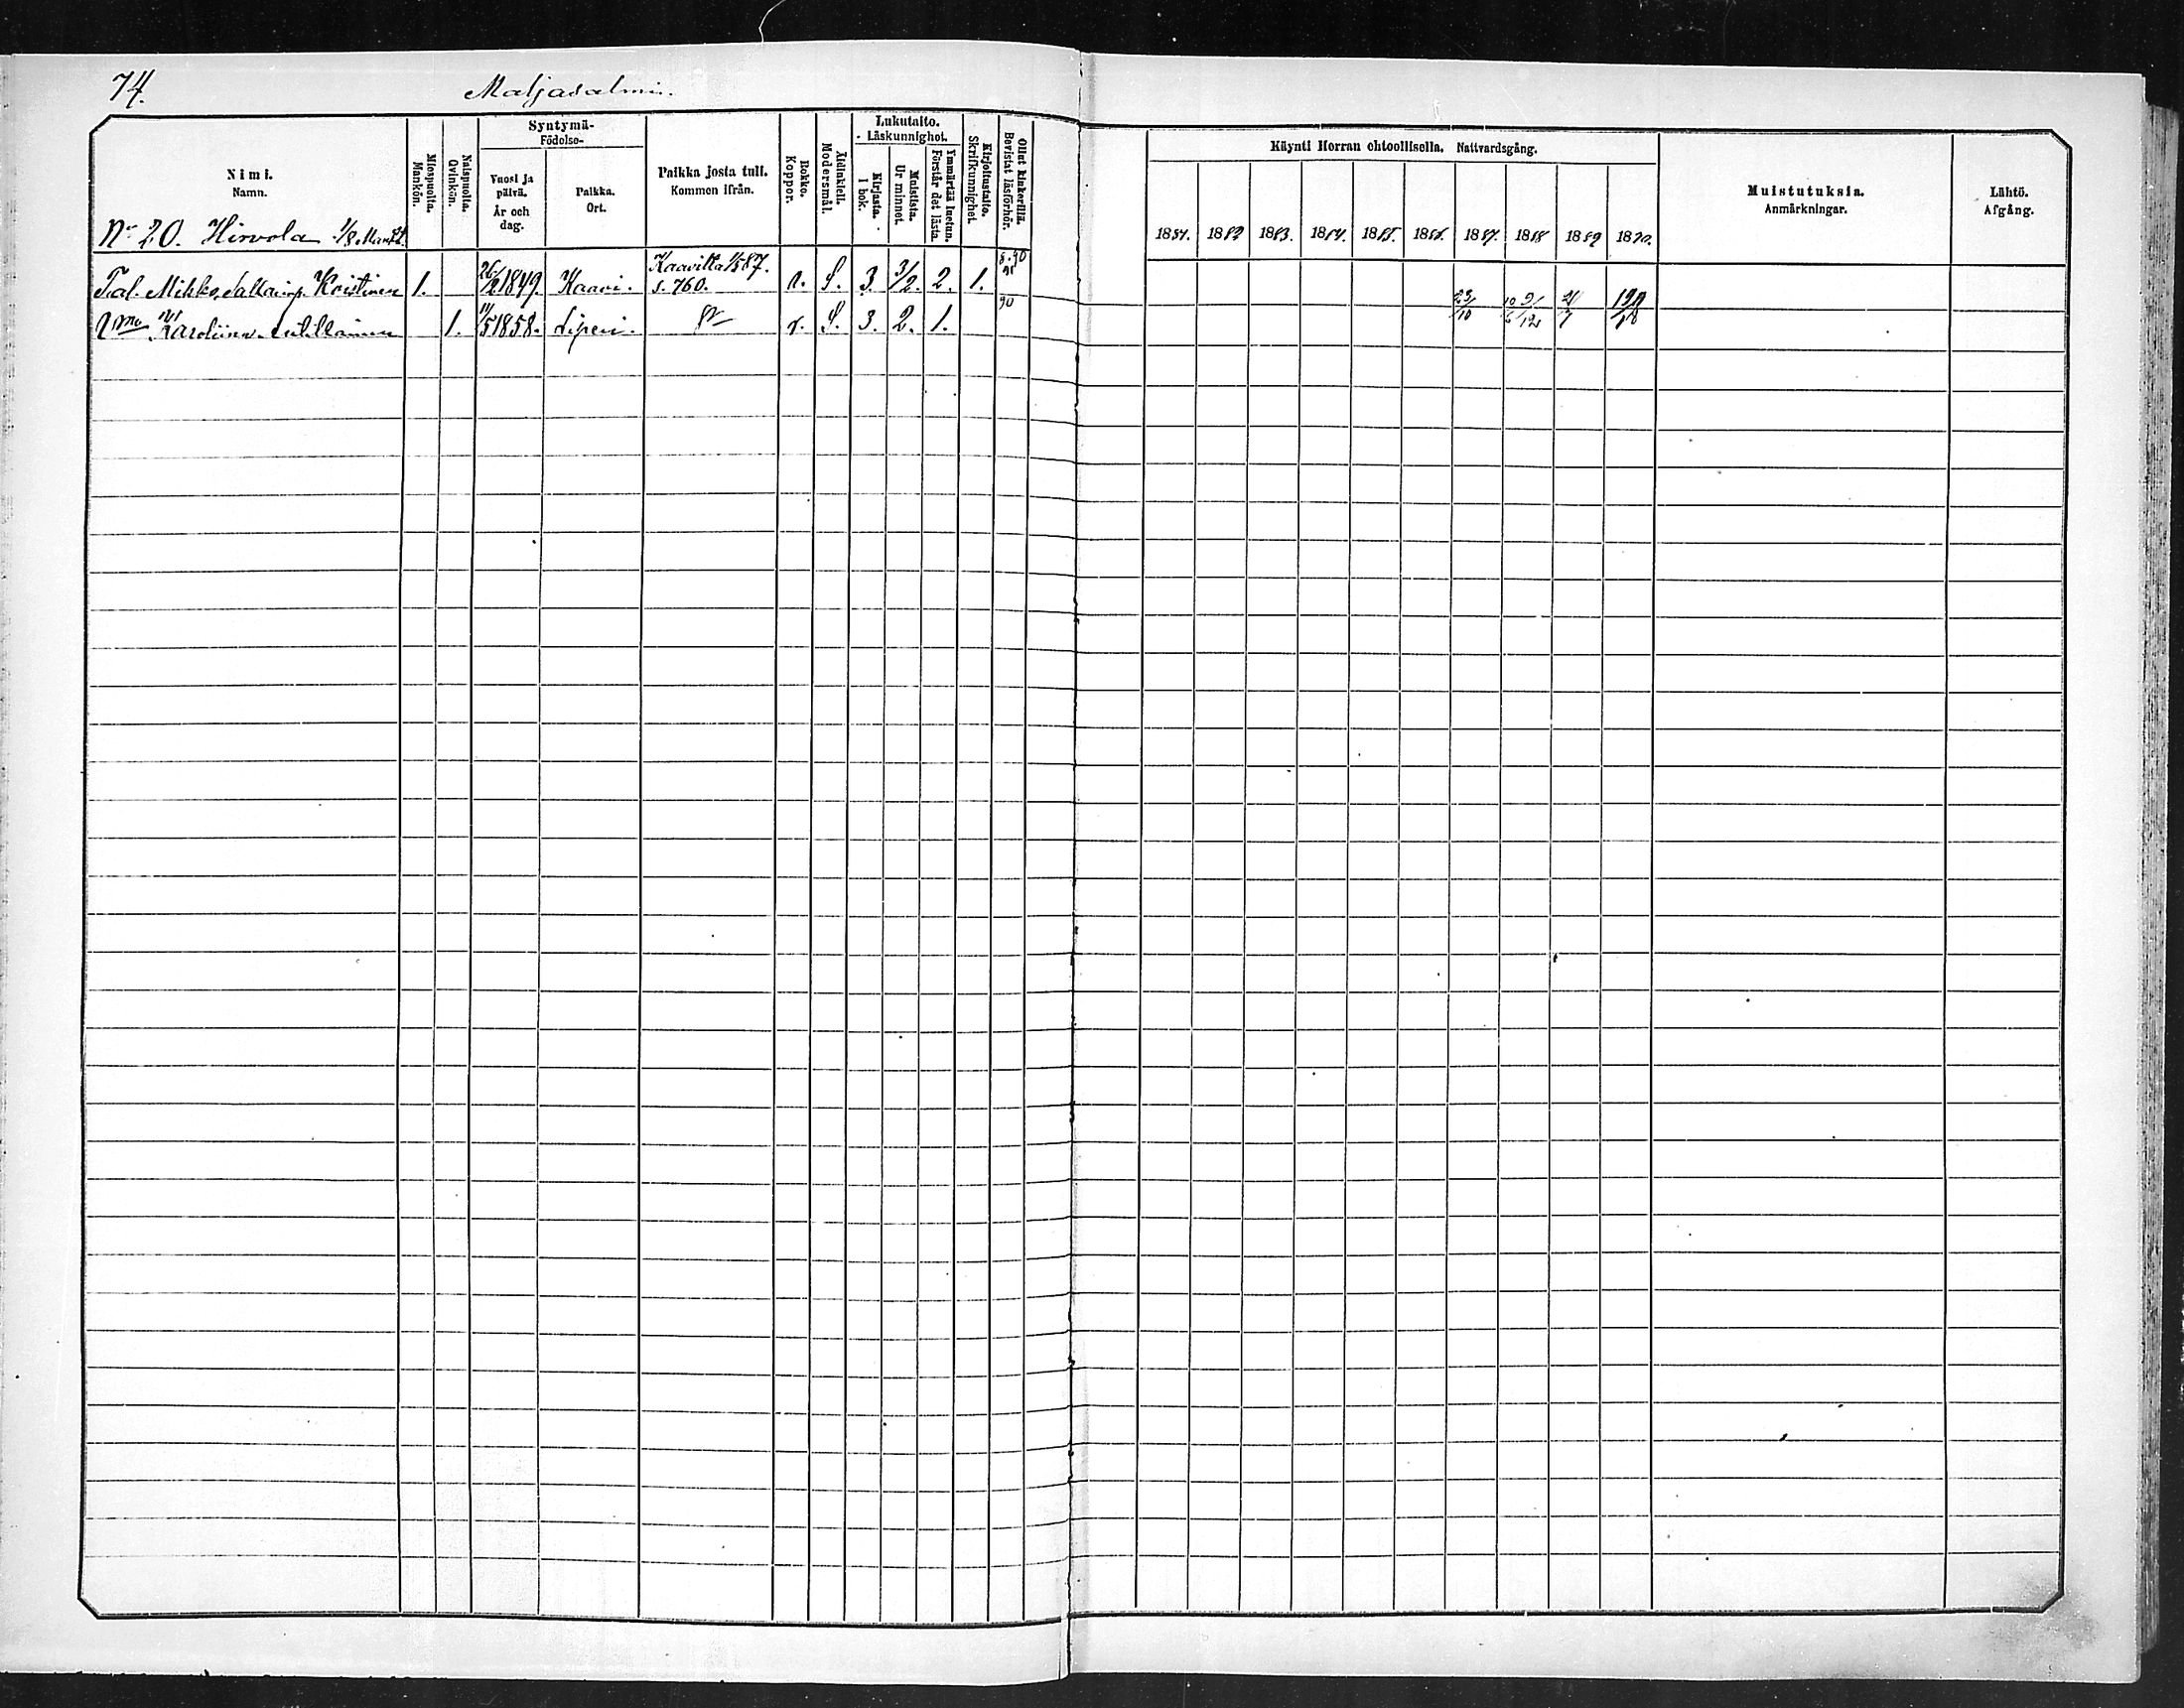 74.
Maljasalmi.
Nimi.
Namn.
Miespuolia.
Mankön.
Naispuolia.
Qvinkön.
Syntymä-
Födelse-
Vuosi ja
päivä.
År och
dag.
Paikka.
Ort.
Paikka josta tull.
Kommen ifrån.
Rokko.
Koppor.
Äidinkieli.
Modersmål.
Lukutaito.
Läskunnighet.
Kirjasta.
I bok.
Muistista.
Ur minnet.
Ymmärtää luetun.
Förstår det lästa
Kirjoitustaito.
Skrifkunnighet.
Ollut kinkerillä.
Bevistat läsförhör.
Käynti Herran ehtoollisella. Nattvardsgång.
1881. 1882 1883. 1884. 1885. 1886. 1887. 1888 1889 1890.
Muistutuksia.
Anmärkningar.
Lähtö.
Afgång.
No 20. Hirvola 1/8
Tal. Mikko Kristinen 1. 26/2 1849. Kaavi. Kaavilta 87. s. 760. r. S. 3. 3/2. 2. 1. 90 91 23/10
Vmo Karoliina 1. 11/5 1858. Liperi. r. S. 3. 2. 1. 90